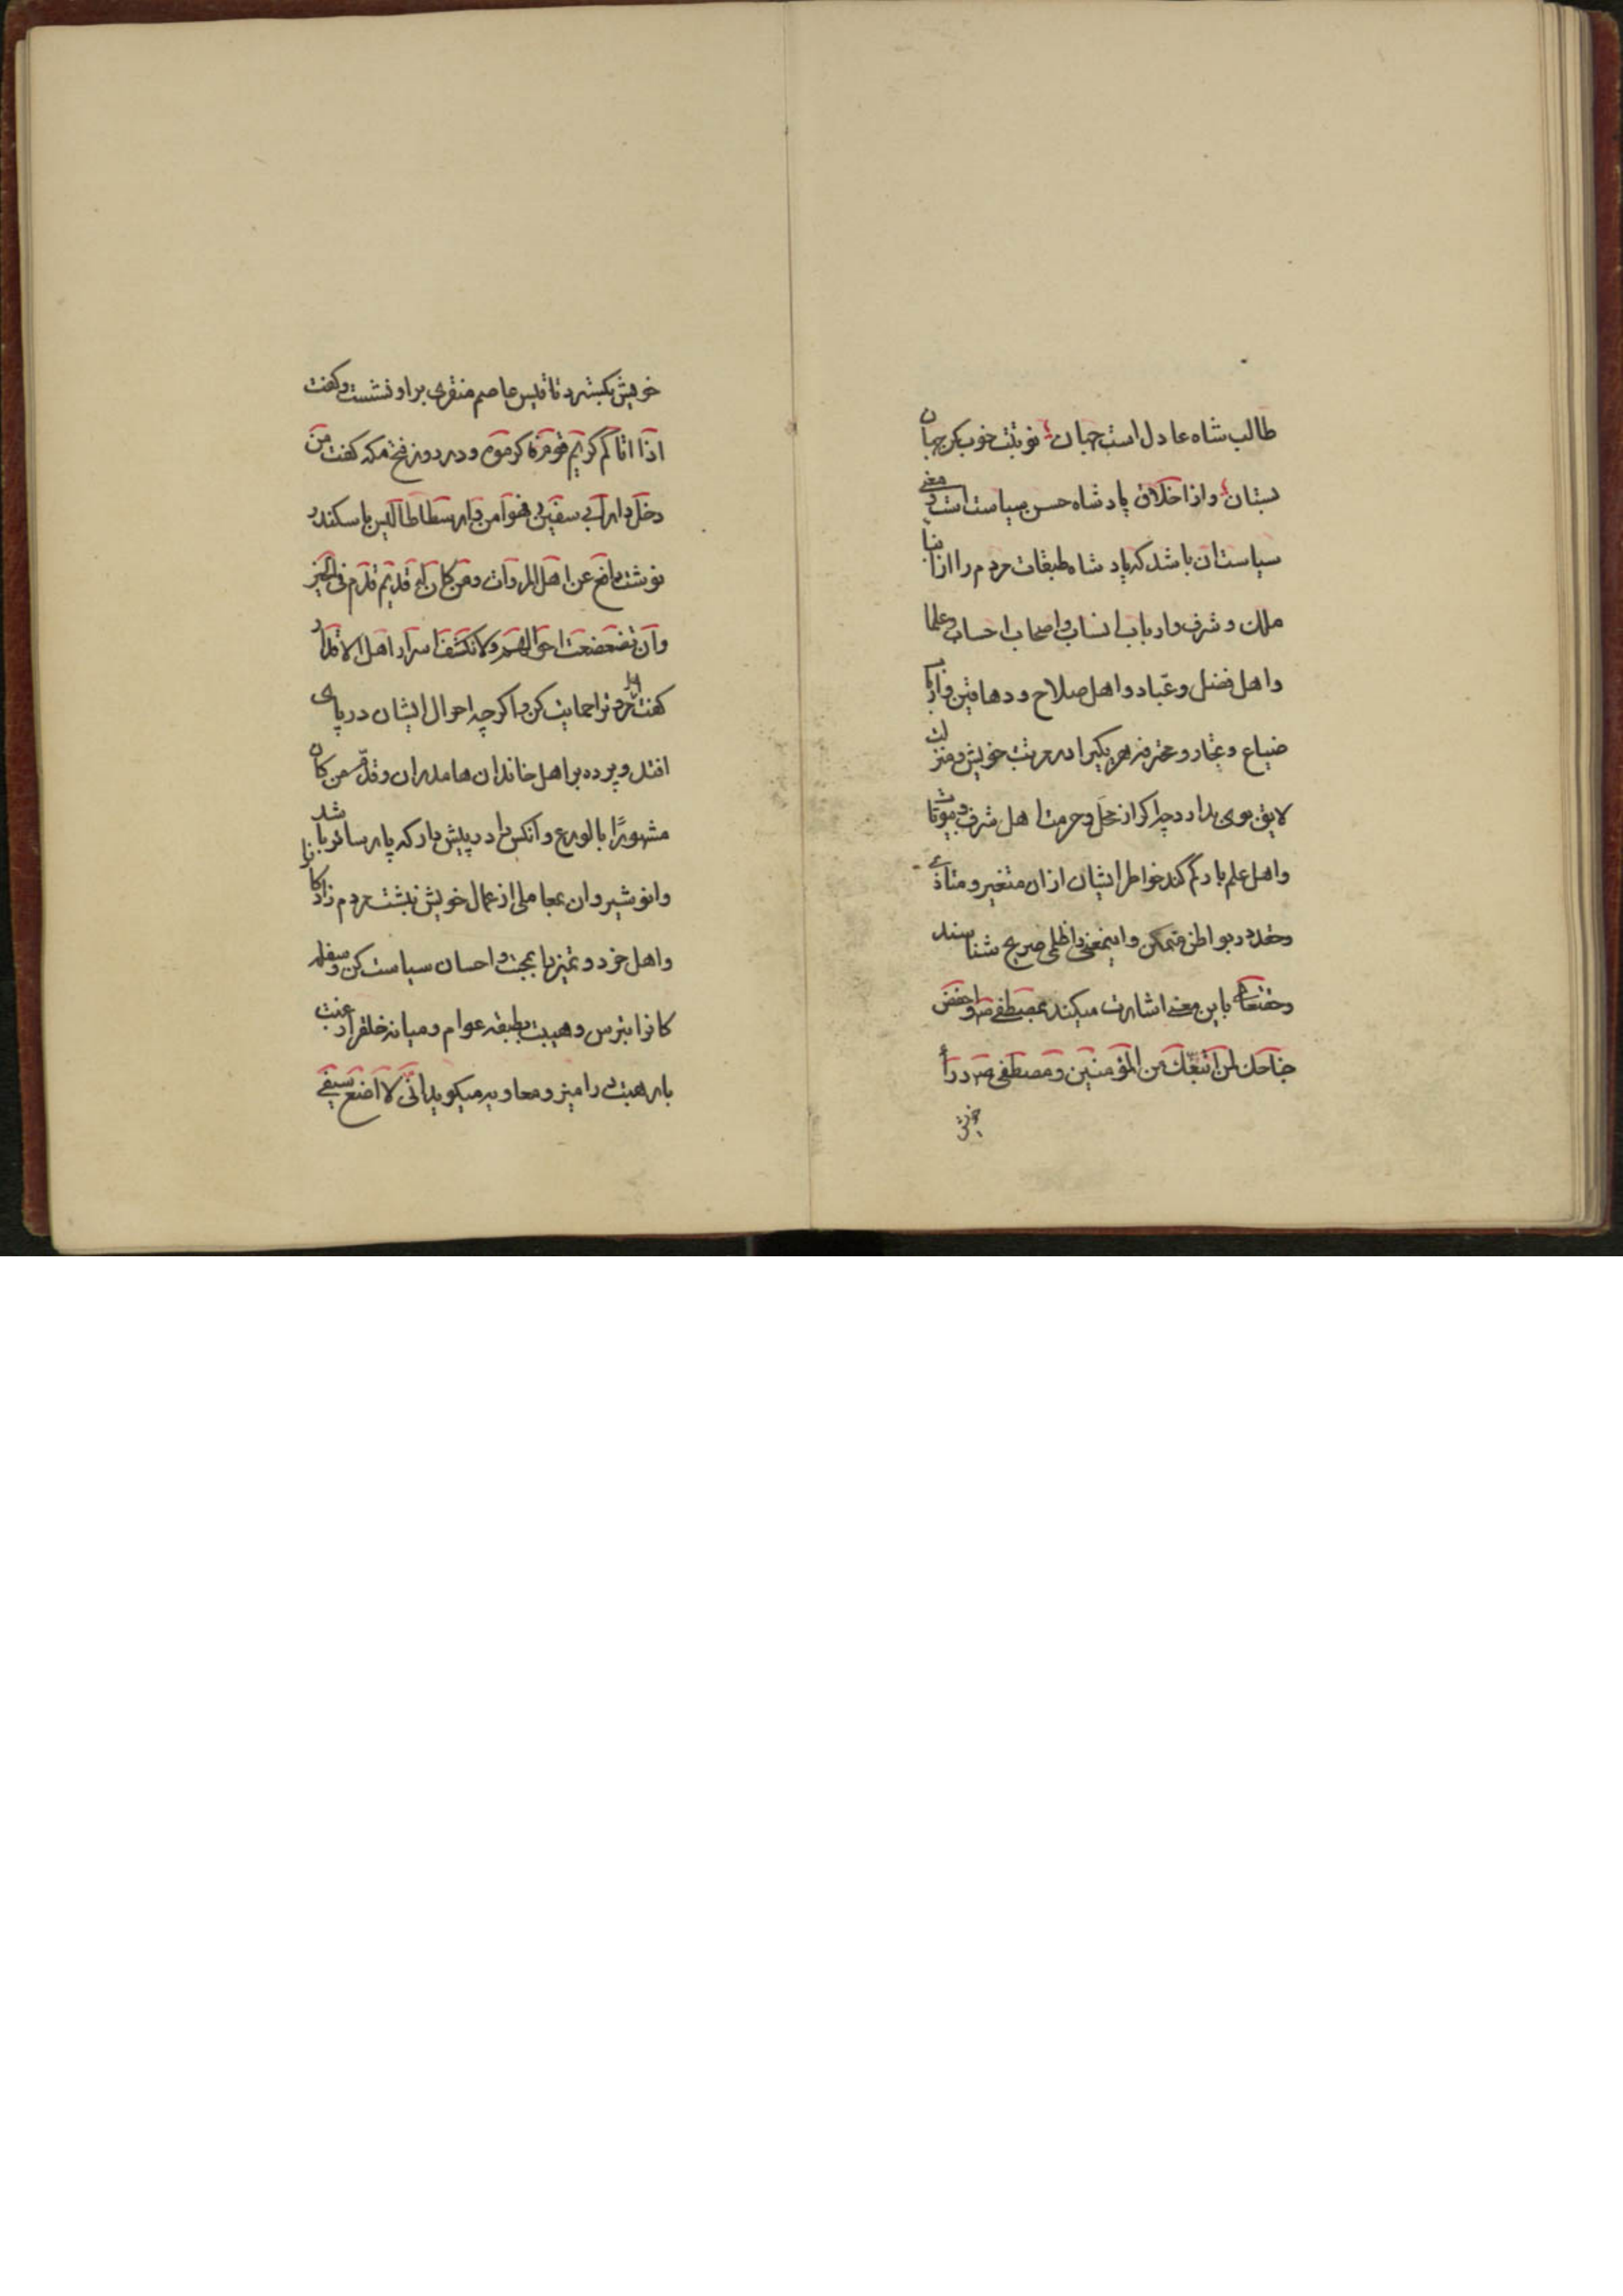 طالب شاه عادل است جهان نوبتت خوب کن جهان
بستان واز اخلاق پادشاه حسن سیاست است و معنی
سیاست آن باشد که پادشاه طبقات مردم را از ابنا
ملک و شرف وارباب انساب واصحاب احساب وعلما
واهل فضل وعباد واهل صلاح ودهاقین وارباب
ضیاع وتجار ومحترفه هر یکیرا در مرتبت خویش ومنزلت
لایق بوی بدارد چه اگر از محل وحرمت اهل شرف وبیوتات
واهل علم باد کم کند خواطر ایشان ازان متغیر ومتاذی
وحقد در بواطن متمکن واینمعنی را ظلمی صریح شناسند
وحقتعالی باین معنی اشارت میکند بمصطفی صم واخفض
جناحک لمن اتبعک من المؤمنین ومصطفی صم رداء
خویش
خویش بگسترد تا قیس عاصم منقری براو نشست وگفت
اذا اتاکم کریم قوم فاکرموه ودر روز فتح مکه گفت من
دخل دار ابی سفین فهوا من وارسطاطالیس باسکندر
نوشت دافع عن اهل المروات ومن کان له قدیم قدم فی الخیر
وان تضعضعت احوالهم ولا تکشف اسرار اهل الاقدار
گفت اهل مروترا حمایت کن واگرچه احوال ایشان در پای
افتد وپرده بر اهل خاندان ها مدران وقدم من کان
مشهورًا بالورع وآنکس را در پیش دار که پارسا تر باشد
وانوشیروان بعاملی از عمال خویش نبشت مردم زادکانرا
واهل خرد وتمیز را بمحبت واحسان سیاست کن وسفله
کانرا بترس وهیبت وطبقه عوام ومیانه خلقرا رغبت
با رهبت در آمیز ومعاویه میگوید انی لا اضع سیفی